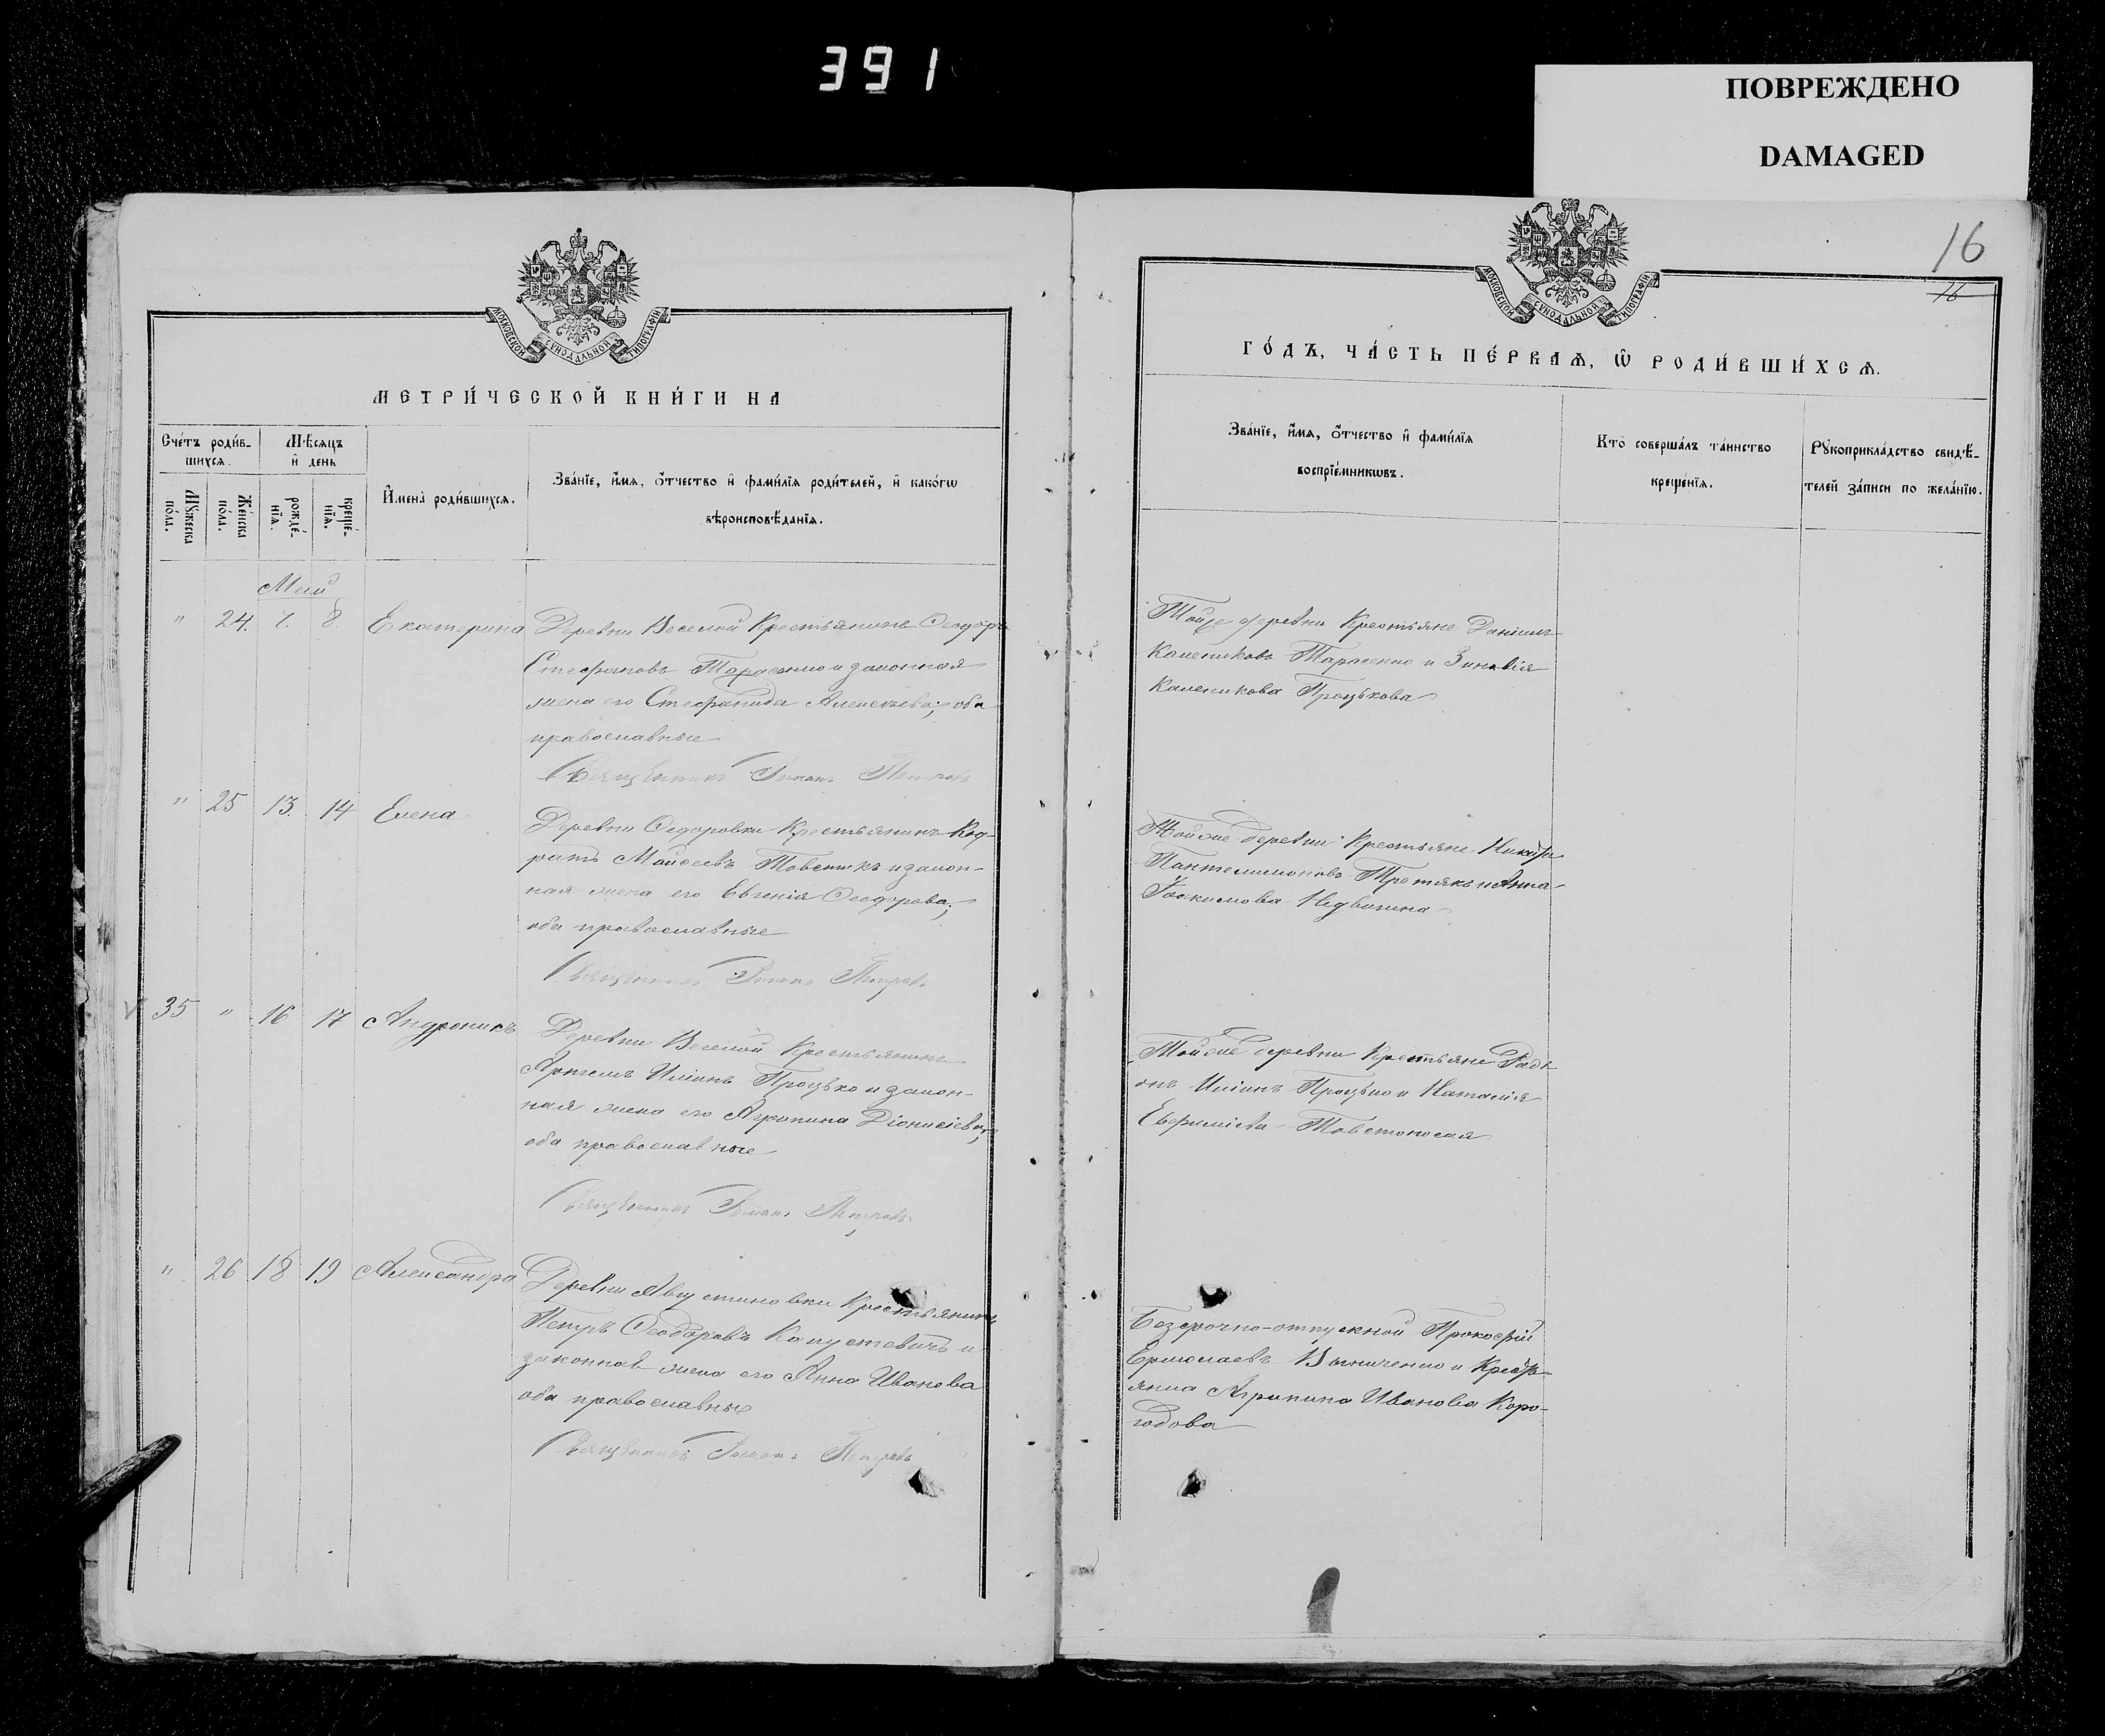 391
ПОВРЕЖДЕНО
DAMAGED
16
16
МОСКОВСКОЙ СѴНОДАЛЬНОЙ ТИПОГРАФІИ
МЕТРИ́ЧЕСКОЙ КНИ́ГИ НА
Сче́тъ роди́в-
шихсѧ.
Мѣ́сѧцъ
и҆ де́нь
Му́жеска
по́ла.
Же́нска
по́ла.
рожде́-
нїѧ.
креще́-
нїѧ.
И҆мена̀ роди́вшихсѧ.
Зва́нїе, и҆́мѧ, ѻ҆́тчество и҆ фами́лїѧ роди́телей, и҆ како́гѡ
вѣроисповѣ́данїѧ.
Май
" 24. 7. 8. Екатерина
Деревни Веселой Крестьянинъ Ѳеодоръ
Стефановъ Тарасенко и законная
жена его Стефанида Алексѣева; оба
православные
Священникъ Романъ Петровъ
" 25 13. 14 Елена
Деревни Ѳедоровки Крестьянинъ Код-
ратъ Моисеевъ Товстикъ и закон-
ная жена его Евгенія Ѳеодорова;
оба православные
Священникъ Романъ Петровъ
35 " 16 17 Андроникъ
Деревни Веселой Крестьянинъ
Артемъ Иліинъ Процько и закон-
ная жена его Агрипина Діонисіева;
оба православные
Священникъ Романъ Петровъ
" 26 18 19 Александра
Деревни Августиновки Крестьянинъ
Петръ Ѳеодоровъ Капустевичъ и
законная жена его Анна Иванова
оба православные
Священникъ Романъ Петровъ
МОСКОВСКОЙ СѴНОДАЛЬНОЙ ТИПОГРАФІИ
ГО́ДЪ, ЧА́СТЬ ПЕ́РВАѦ, Ѽ РОДИ́ВШИХСѦ.
Зва́нїе, и҆́мѧ, ѻ҆́тчество и҆ фами́лїѧ
воспрїе́мникѡвъ.
Кто̀ соверша́лъ та́инство
креще́нїѧ.
Рꙋкоприкла́дство свидѣ́-
телей за́писи по жела́нїю.
Тойже деревни Крестьяне Даніилъ
Калениковъ Тарасенко и Зиновія
Каленикова Процькова
Тойже деревни Крестьяне Никифоръ
Пантелимоновъ Третякъ и Анна
Іоакимова Недвигина
Тойже деревни Крестьяне Радi-
онъ Иліинъ Процько и Наталія
Евфиміева Товстоносая
Безсрочно-отпускной Прокофій
Ермолаевъ Винниченко и Кресть-
янка Агрипина Иванова Коро-
годова